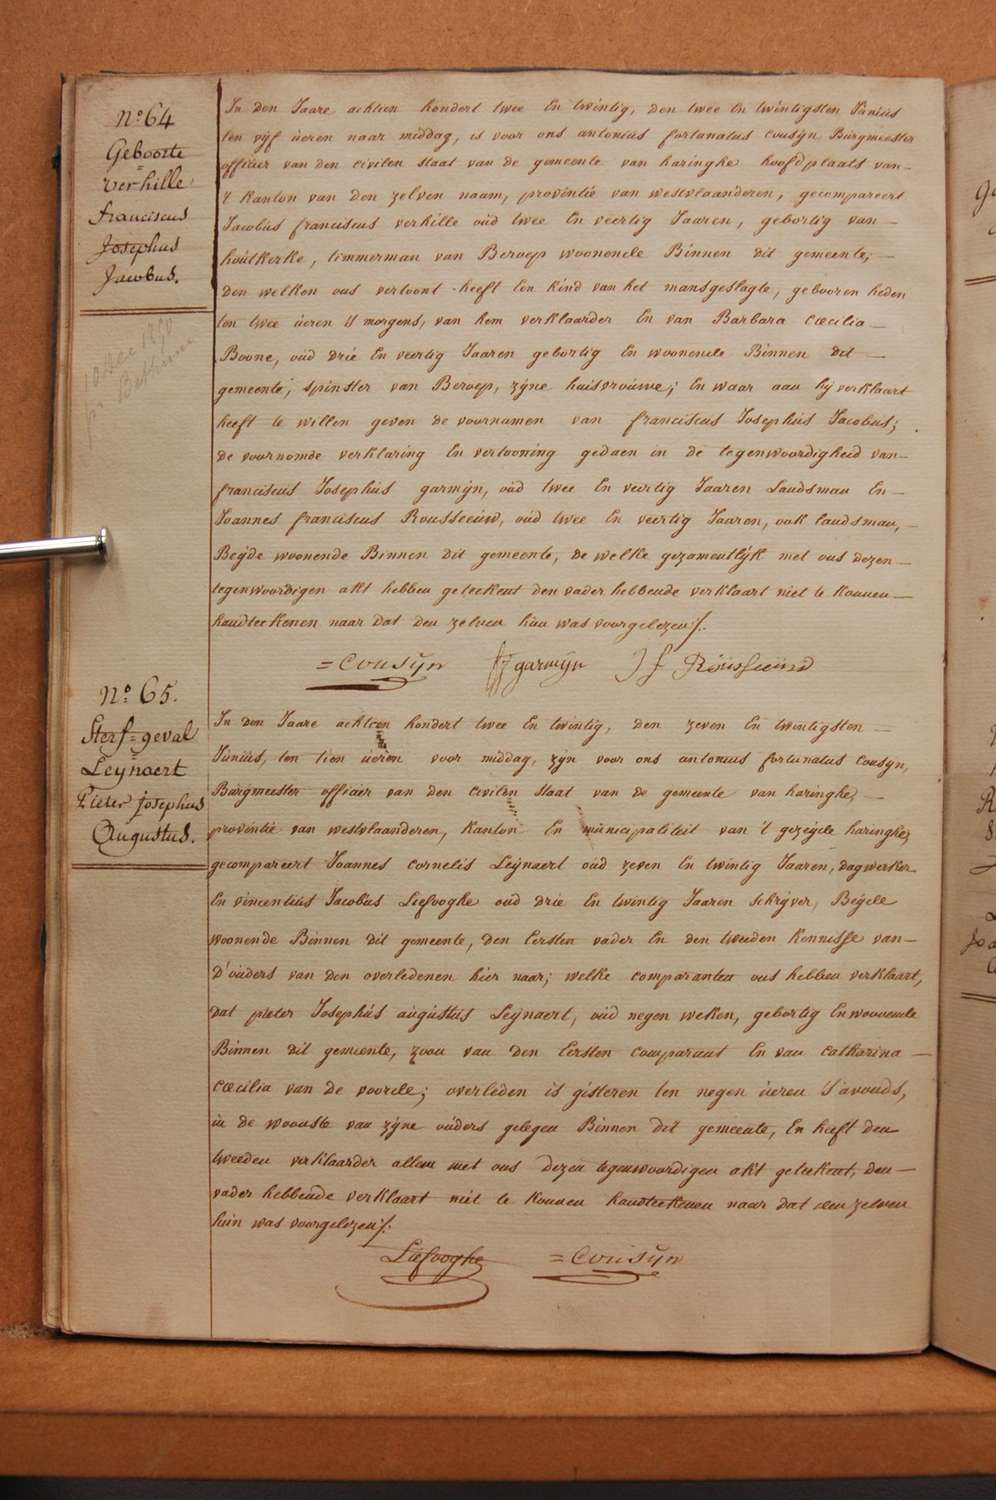 N.º 64
Geboorte
verhille
franciscus
Josephus
Jacobus.
10 dec 1890
In den Jaare achtien hondert twee En twintig, den twee En twintigsten Junius
ten vijf üeren naar middag, is voor ons antonius fortunatus cousÿn Burgmeester
officier van den civilen staat van de gemeente van haringhe hoofdplaats van
't kanton van den zelven naam, provintie van westvlaanderen, gecompareert
Jacobus franciscus verhille oüd twee En veertig Jaaren, gebortig van
houtkerke, timmerman van Beroep woonende Binnen dit gemeente;
den welken ons vertoont heeft Een kind van het mansgeslagte, gebooren heden
ten twee üeren 's morgens, van hem verklaarder En van Barbara cæcilia
Boone, oüd drie En veertig Jaaren gebortig En woonende Binnen dit
gemeente, spinster van Beroep, zÿne huisvrouwe; En waar aan hÿ verklaart
heeft te willen geven de voornamen van franciscus Josephüs Jacobüs;
de voornomde verklaring En vertooning gedaen in de tegenwoordigheid van
franciscus Josephüs garmÿn, oüd twee En veertig Jaaren Landsman En
Joannes franciscus Rousseeüw, oüd twee En veertig Jaaren, ook landsman,
Beÿde woonende Binnen dit gemeente, de welke gezamentlÿk met ons dezen
tegenwoordigen akt hebben geteekent den vader hebbende verklaart niet te konnen
handteekenen naar dat den zelven hün was voorgelezen/.
= Cousÿn fj garmÿn J f Roüsseeüw
N.º 65.
Sterf=geval
Leÿnaert
Pieter Josephus
Augustus.
In den Jaare achtien hondert twee En twintig, den zeven En twintigsten
Jüniüs, ten tien üeren voor middag, zÿn voor ons antonius fortunatus cousyn,
Bürgmeester officier van den civilen staat van de gemeente van haringhe,
provintie van westvlaanderen, Kanton En municipaliteit van 't gezeÿde haringhe,
gecompareert Joannes cornelis Leÿnaert oüd zeven En twintig Jaaren, dagwerker
En vincentiüs Jacobüs Liefooghe oüd drie En twintig Jaaren schrÿver, Beÿde
woonende Binnen dit gemeente, den Eersten vader En den tweeden kennisse van
D'oüders van den overledenen hier naar; welke comparanten ons hebben verklaart,
dat pieter Josephüs augüstüs Leÿnaert, oüd negen weken, gebortig En woonende
Binnen dit gemeente, zoon van den Eersten comparant En van catharina
cæcilia van de voorde; overleden is gisteren ten negen üeren 's avonds,
in de woonste van zÿne oüders gelegen Binnen dit gemeente, En heeft den
tweeden verklaarder alleen met ons dezen tegenwoordigen akt geteekent, den
vader hebbende verklaart niet te konnen handteekenen naar dat den zelven
hün was voorgelezen/.
Liefooghe = Cousÿn